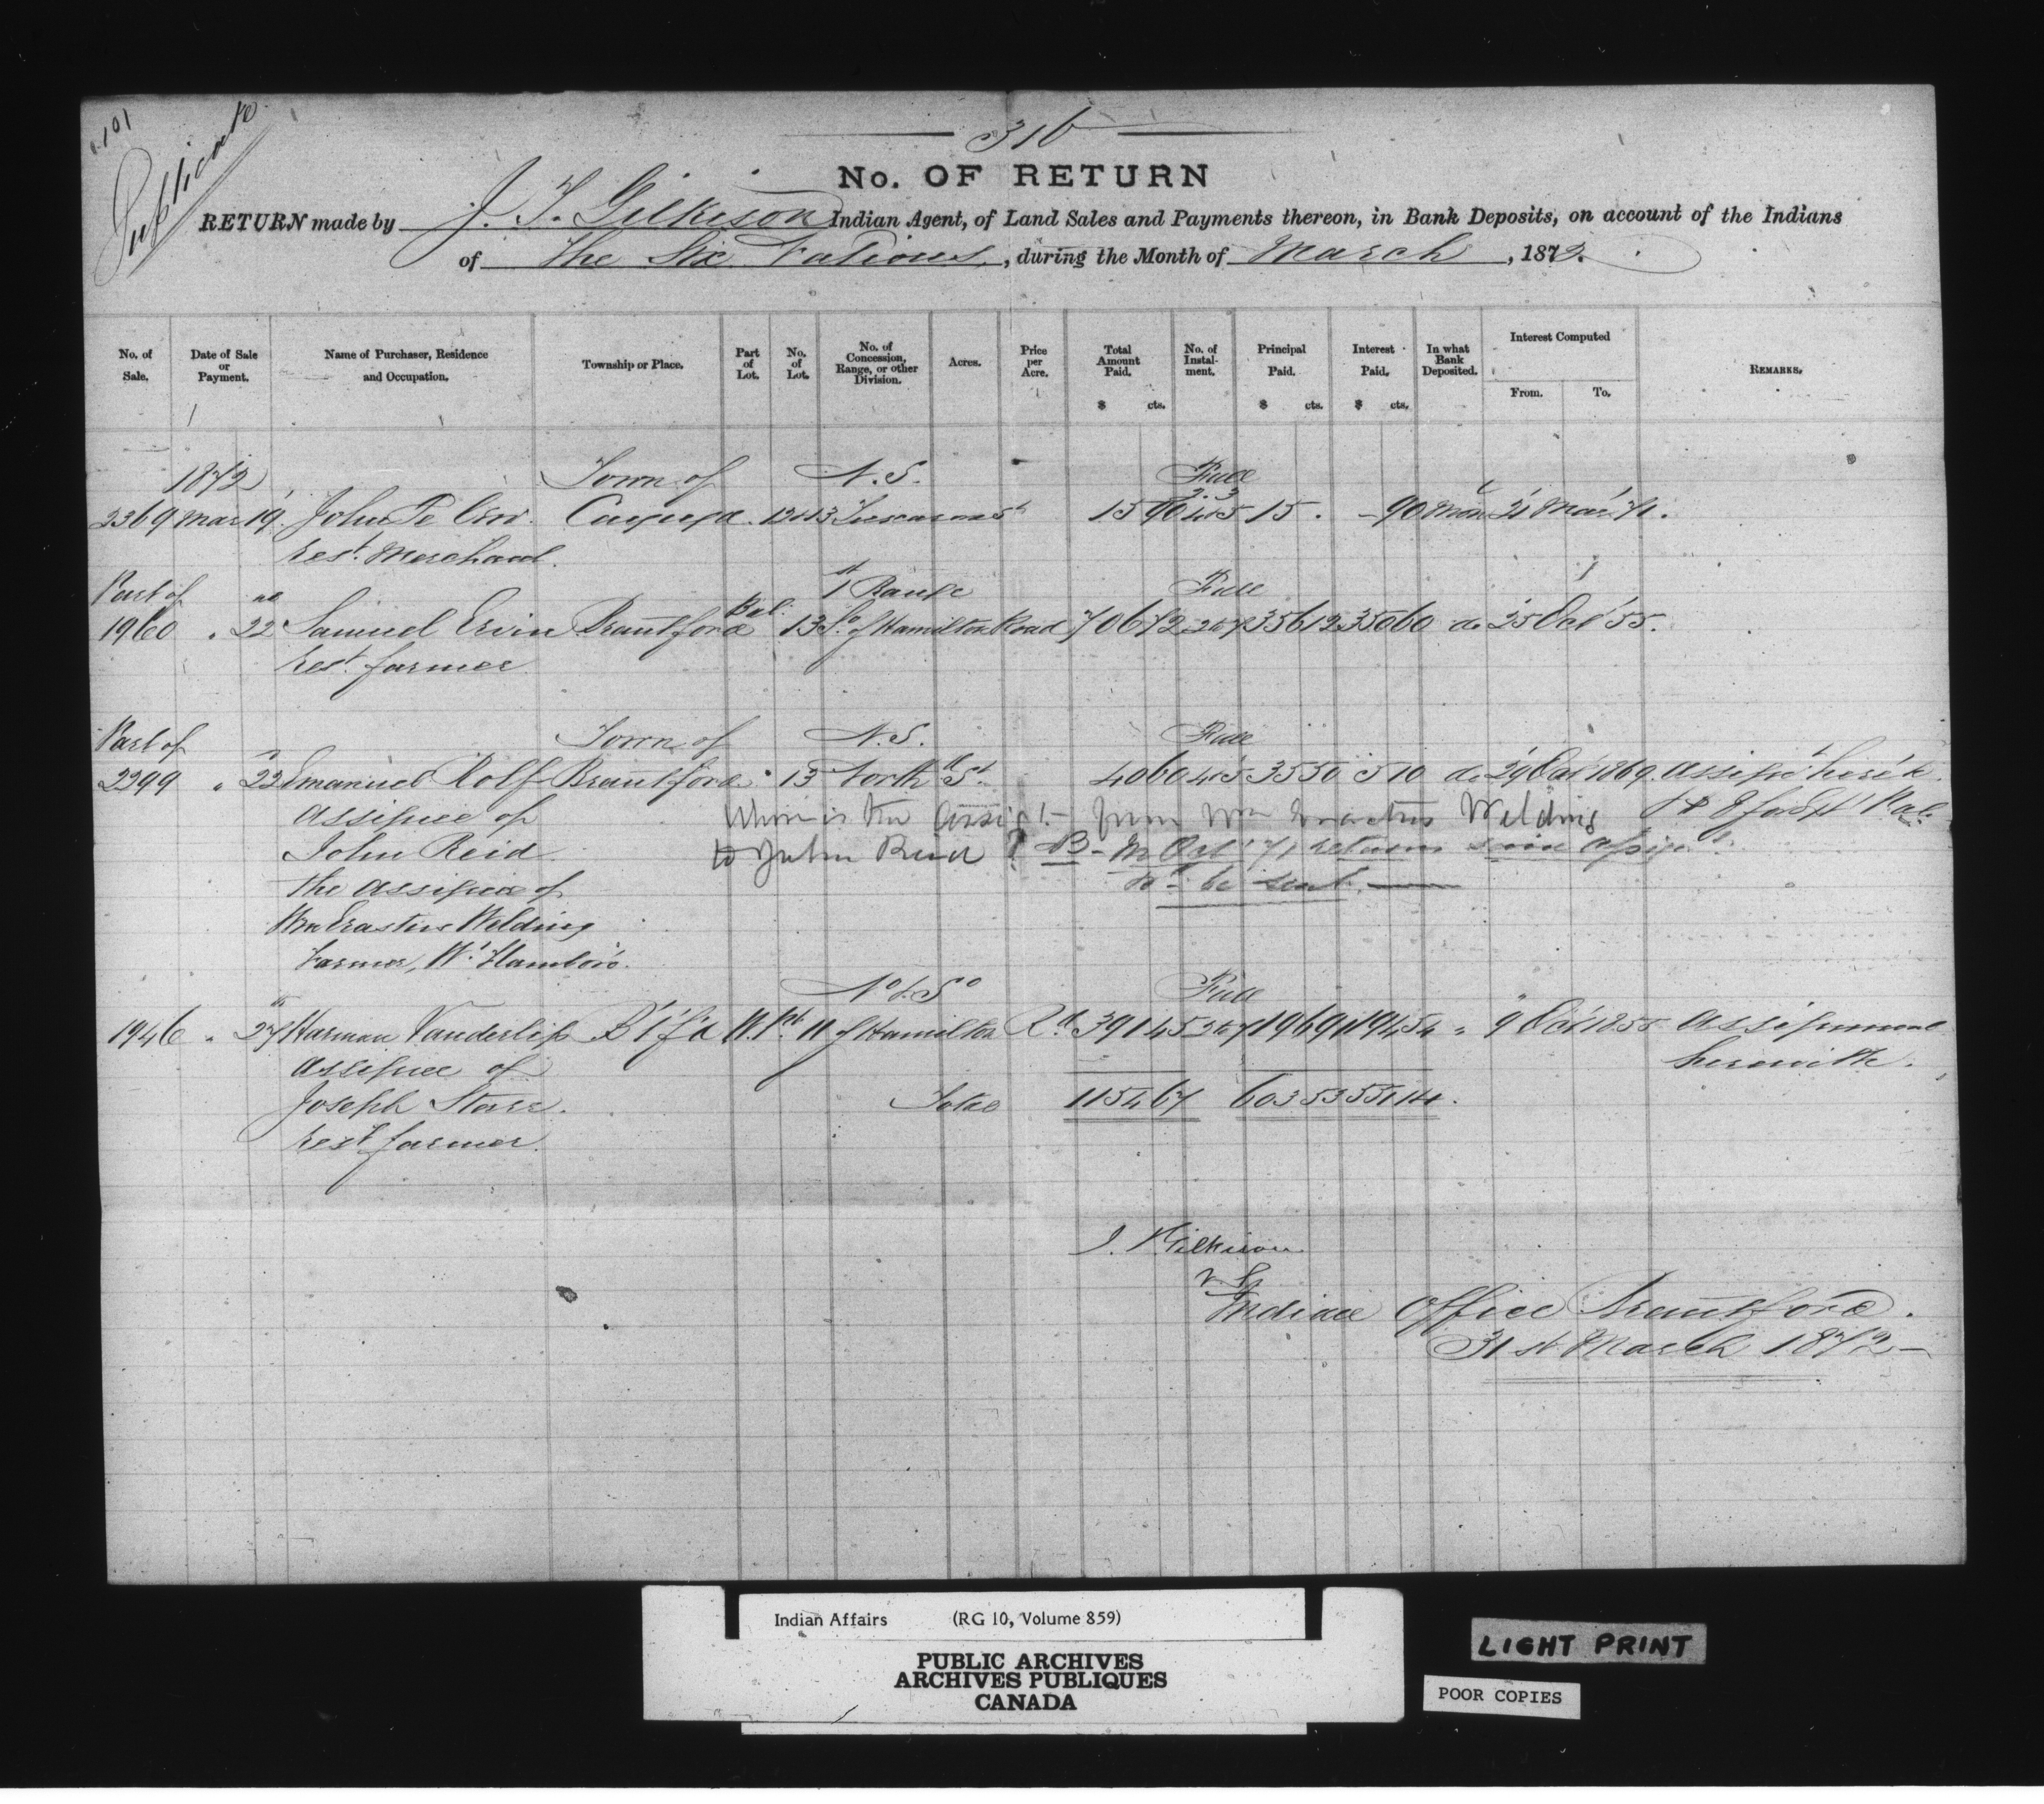 1.101
Duplicate
316
No. OF RETURN
RETURN made by J. T. Gilkison Indian Agent, of Land Sales and Payments thereon, in Bank Deposits, on account of the Indians
of The Six Nations, during the Month of March, 1872.
No. of Sale. Date of Sale or Payment. Name of Purchaser, Residence and Occupation. Township or Place. Part of Lot. No. of Lot. No. of Concession, Range, or other Division. Acres. Price per Acre. Total Amount Paid. $ cts. No. of Instalment. Principal Paid. $ cts. Interest Paid. $ cts. In what Bank Deposited. Interest Computed From. To. REMARKS.
1872 Town of N. S. Full
2369 Mar 19 John De Cew Cayuga 12&13 Tuscarora St 15 90 2.3 4&5 15. -90 Mon 21 Mar 71.
rest. Merchant.
Part of 1st Range Full
1960 " 22 Samuel Ervin Brantford Bal. 13 So. of Hamilton Road 706 72 2 to 7 356 12 350 60 do 25 Oct '55.
rest. farmer
Part of Town of N. S. Full
2299 " 22 Emanuel Rolf Brantford 13 North St. 40 60 4&5 35 50 5 10 do 29 Oct 1869. Assigt here'h
Assignee of Where is the Assigt.- from Wm Erastus Welding
John Reid to John Reid? B- In Oct '71 return said assigt.
the assignee of to be sent.
Wm Erastus Welding
Farmer, W. Flamboro.
No. & So Full
1946 " 27 Harman Vanderlip B'f'd W. Pt. 11 of Hamilton Rd. 391 45 2 to 7 196 91 194 54 " 9 Oct 1855 Assignment
Assignee of herewith.
Joseph Starr. Total 1154 67 603 53 551 14.
rest. farmer.
J. T. Gilkison
V. S.
Indian Office Brantford.
31st March 1872
Indian Affairs (RG 10, Volume 859)
PUBLIC ARCHIVES
ARCHIVES PUBLIQUES
CANADA
LIGHT PRINT
POOR COPIES